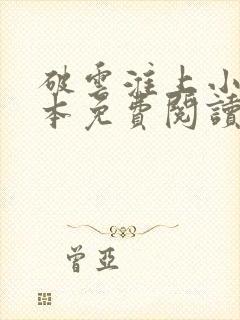 破雲淮上小
本免費閱讀
曾亞